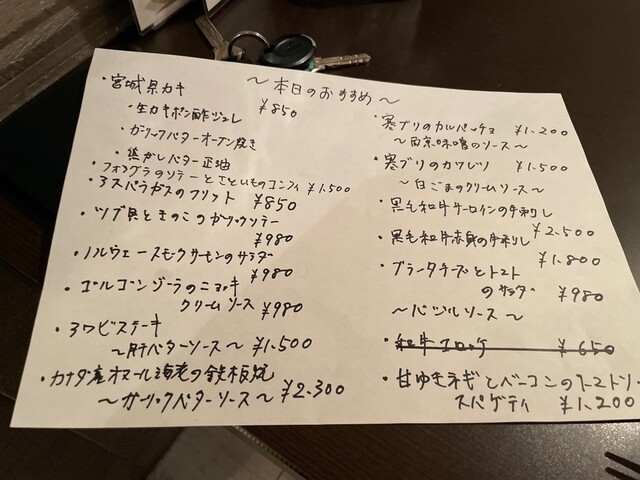 〜本日のおすすめ〜
・宮城県カキ
・生カキポン酢ジュレ ¥850
・ガーリックバターオーブン焼き
・焦がしバター正油
・フォアグラのソテーとさといものコンフィ ¥1.500
・アスパラガスのフリット ¥850
・ツブ貝ときのこのガーリックソテー
¥980
・ノルウェースモークサーモンのサラダ
¥980
・ゴルゴンゾーラのニョッキ
クリームソース ¥980
・アワビステーキ
〜肝バターソース〜 ¥1.500
・カナダ産オマール海老の鉄板焼
〜ガーリックバターソース〜 ¥2.300
・寒ブリのカルパッチョ ¥1.200
〜西京味噌のソース〜
・寒ブリのカツレツ ¥1.500
〜白ごまのクリームソース〜
・黒毛和牛サーロインの串刺し
¥2.500
・黒毛和牛赤身の串刺し
¥1.800
・ブラータチーズとトマト
のサラダ ¥980
〜バジルソース〜
・和牛コロッケ ¥650
・甘ゆきネギとベーコンのトマトソー
スパゲティ ¥1.200